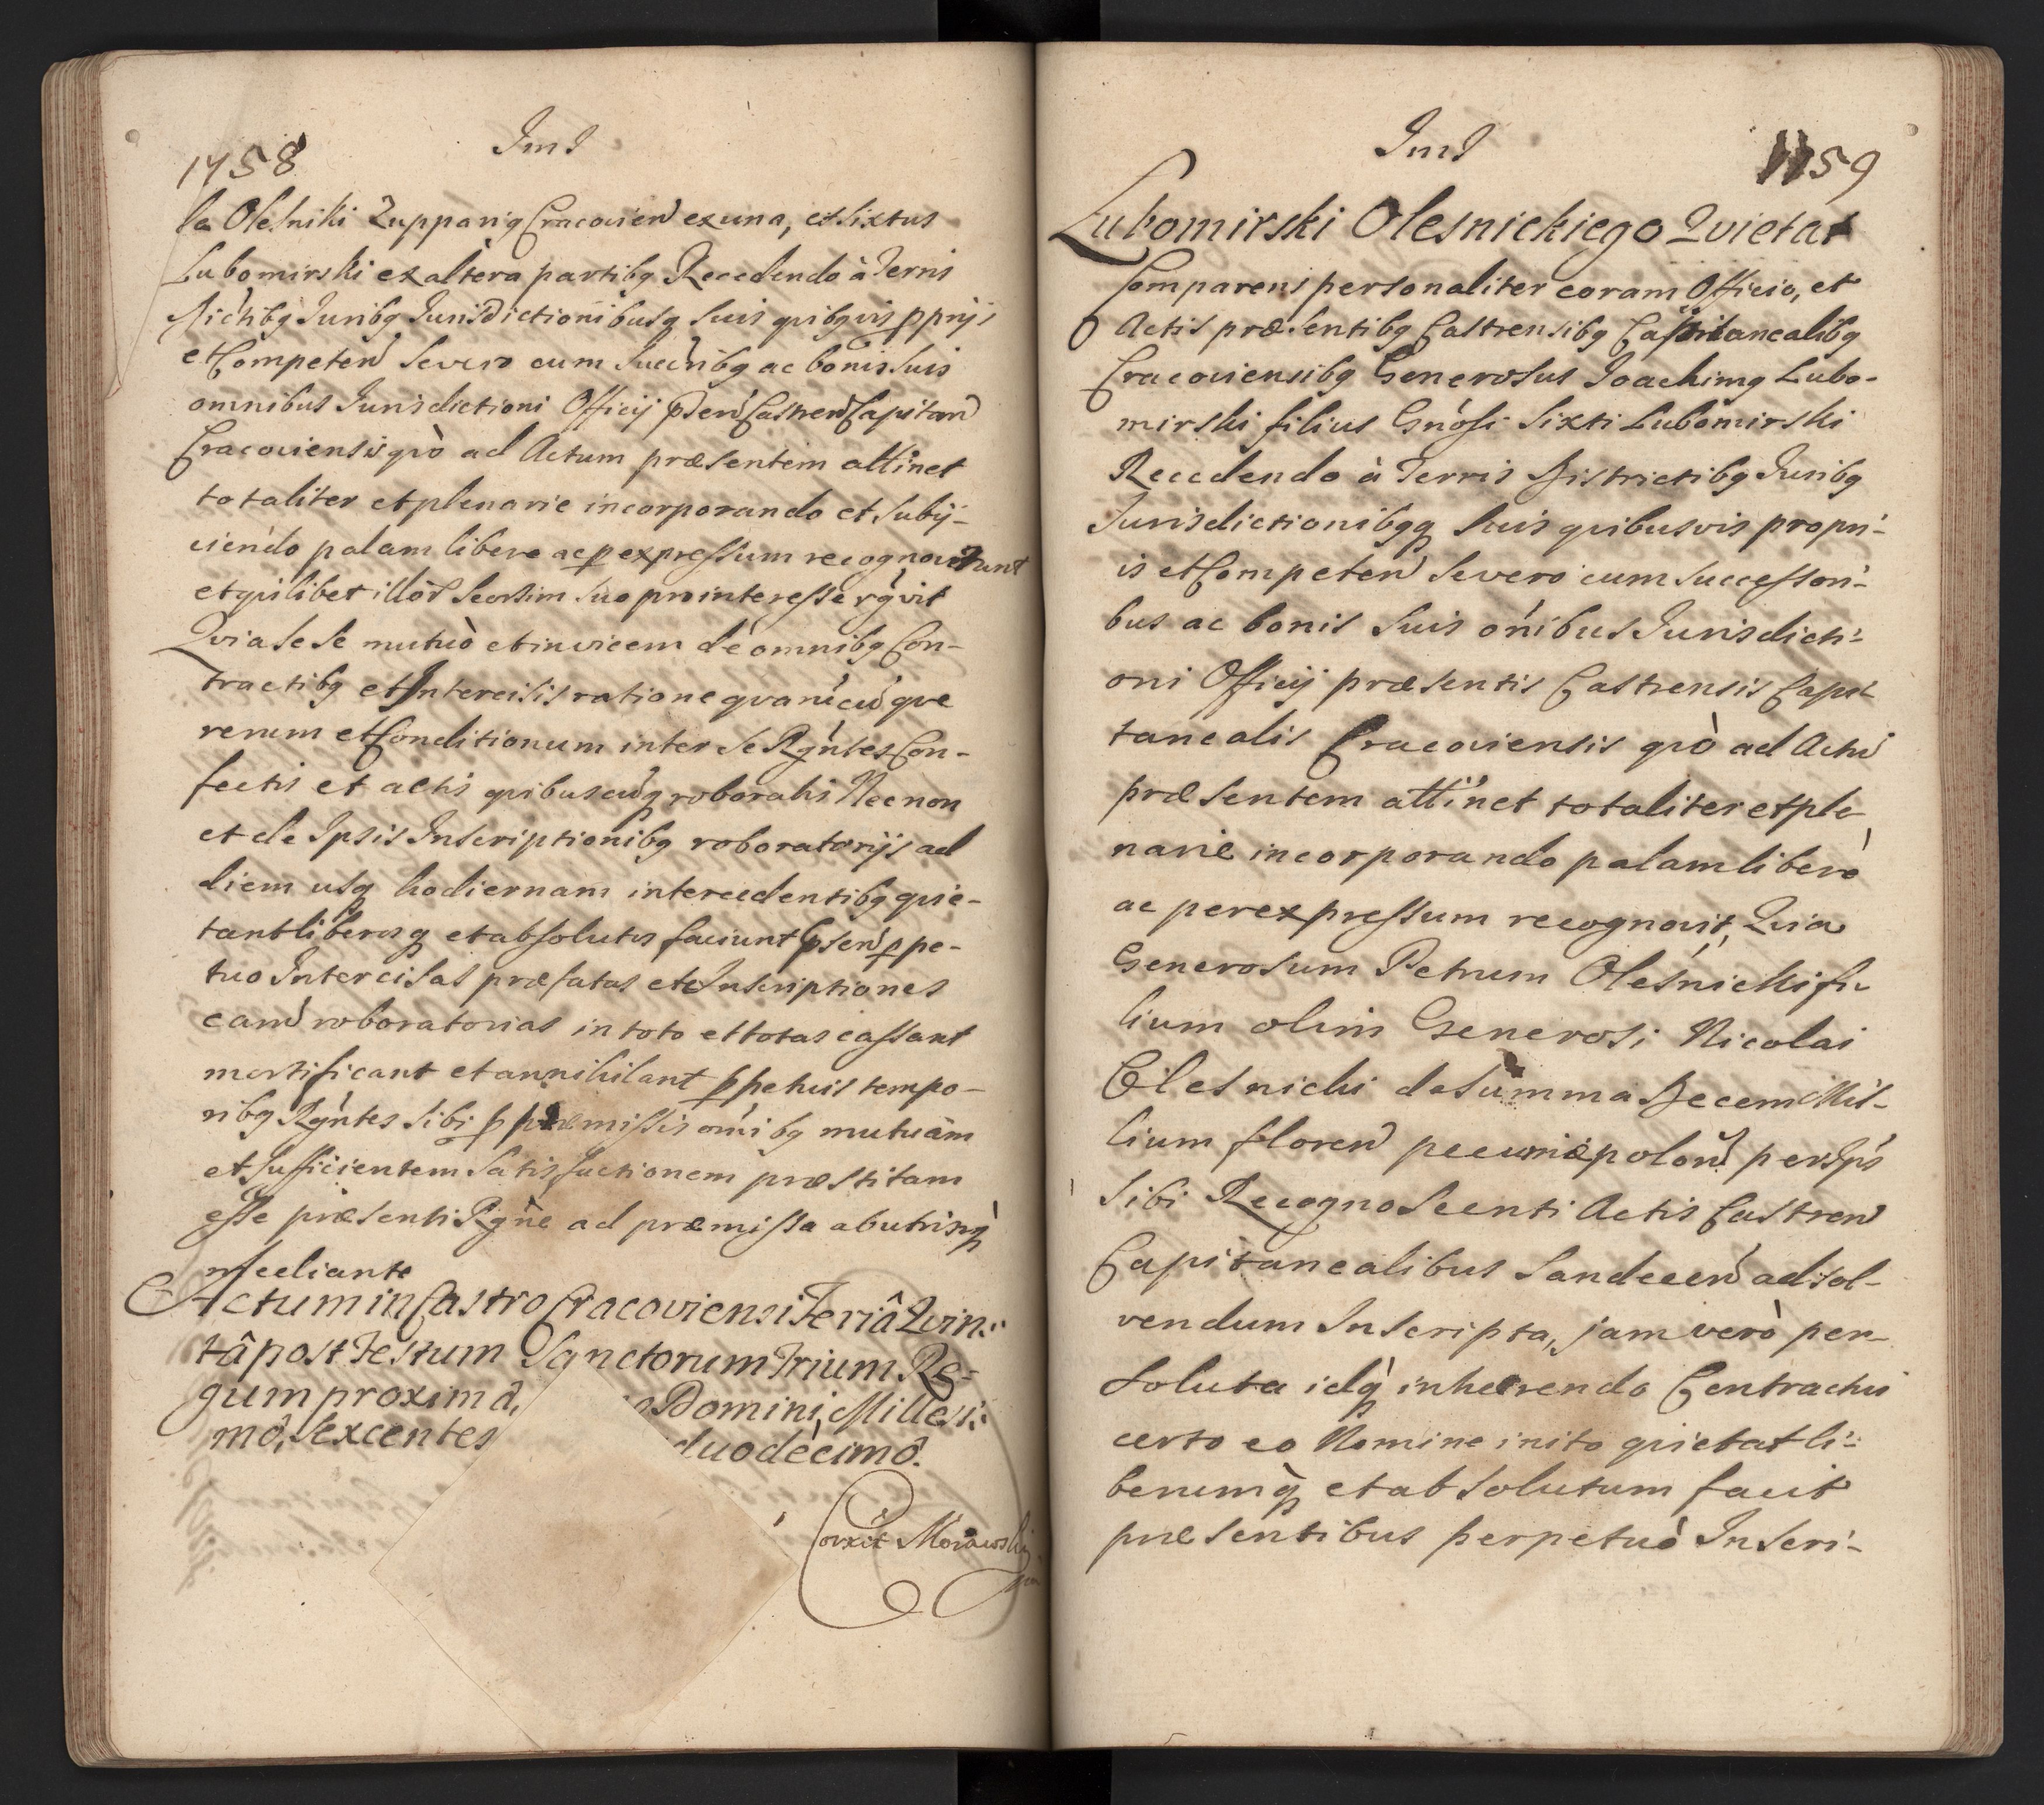 1758
Ind
la Olesniki Zuppariq Cracovien ex una, et Sixtus
Lubomirski ex altera partibq Recedendo à Terris
Districtibq Juribq Jurisdictionibusq suis quibqvis pprijs
et Competen Severo cum Succribq ac bonis suis
omnibus Jurisdictioni Officij psen Castren Capitan
Cracoviensis qvò ad Actum præsentem attinet
totaliter et plenarie incorporando et subij-
ciendo palam libere ac p expressum recognoverunt
et quilibet illor seorsim suo pro interesse rgvit
Qvia sese mutuò et invicem de omnibq Con-
tractibq et Intercisis ratione qvarucuqve
rerum et Conditionum inter se Rgntes Con-
fectis et actis qvibuscuq roboratis Necnon
et de Ipsis Inscriptionibq roboratorijs ad
diem usq hodiernam intercedentibq qvie-
tant liberosq et absolutos faciunt psen ppe-
tuo Intercisas præfatas et Inscriptiones
earu roboratorias in toto et totas cassant
mortificant et annihilant ppetuis tempo-
ribq Rgntes sibi p præmissis omibq mutuam
et sufficientem satisfactionem præstitam
esse præsenti Rgne ad præmissa ab utrisq
mediante
Actum in Castro Cracoviensi Feriâ Qvin-
tâ post Festum Sanctorum Trium Re-
gum proximâ, Domini, Millesi-
mô, Sexcentes duodecimô.
Corxit Morawski
Ind
1159
Lubomirski Olesnickiego Qvietat
Comparens personaliter coram Officio, et
Actis præsentibq Castrensibq Capitanealibq
Cracoviensibq Generosus Joachimq Lubo-
mirski filius Gnosi Sixti Lubomirski
Recedendo à Terris Districtibq Juribq
Jurisdictionibqq suis qvibusvis propri-
is et Competen Severo cum successori-
bus ac bonis suis onibus Jurisdicti-
oni Officij præsentis Castrensis Capi-
tanealis Cracoviensis qvò ad Actu
præsentem attinet totaliter et ple-
narie incorporando palam liberè
ac per expressum recognovit, Qvia
Generosum Petrum Olesnicki fi-
lium olim Generosi Nicolai
Olesnicki de summa Decem Mil-
lium floren pecuniæ polon per Ips
sibi Recognoscenti Actis Castren
Capitanealibus Sandecen ad sol-
vendum Inscripta, jam verò per-
soluta idq inhærendo Contractui
certo eo Nomine inito qvietat li-
berumq et absolutum facit
præsentibus perpetuò Inscri-